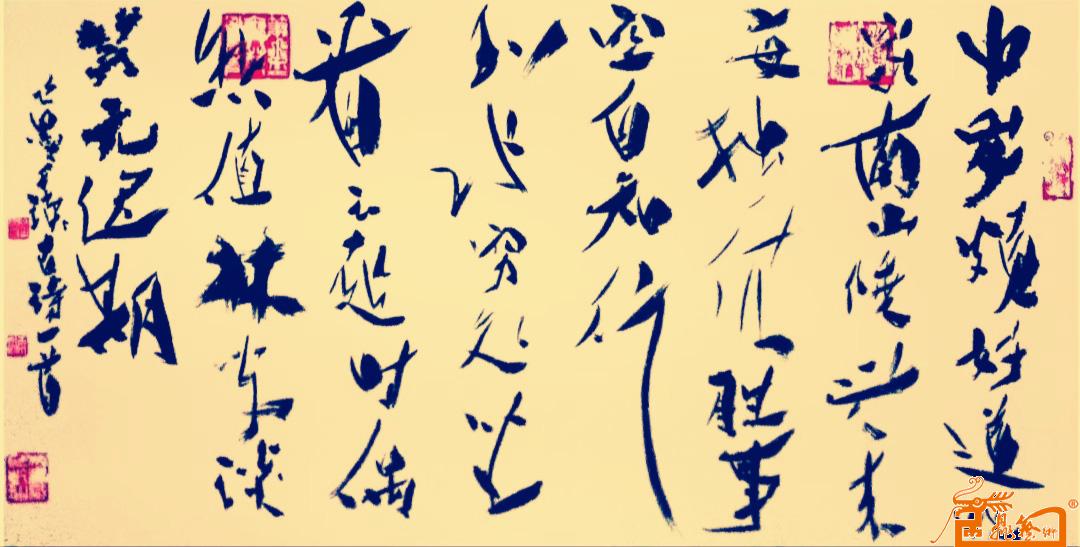 中岁颇好道
家南山陲兴来
每独往胜事
空自知行
到水穷处坐
看云起时偶
然值林叟谈
笑无还期
王维古诗一首